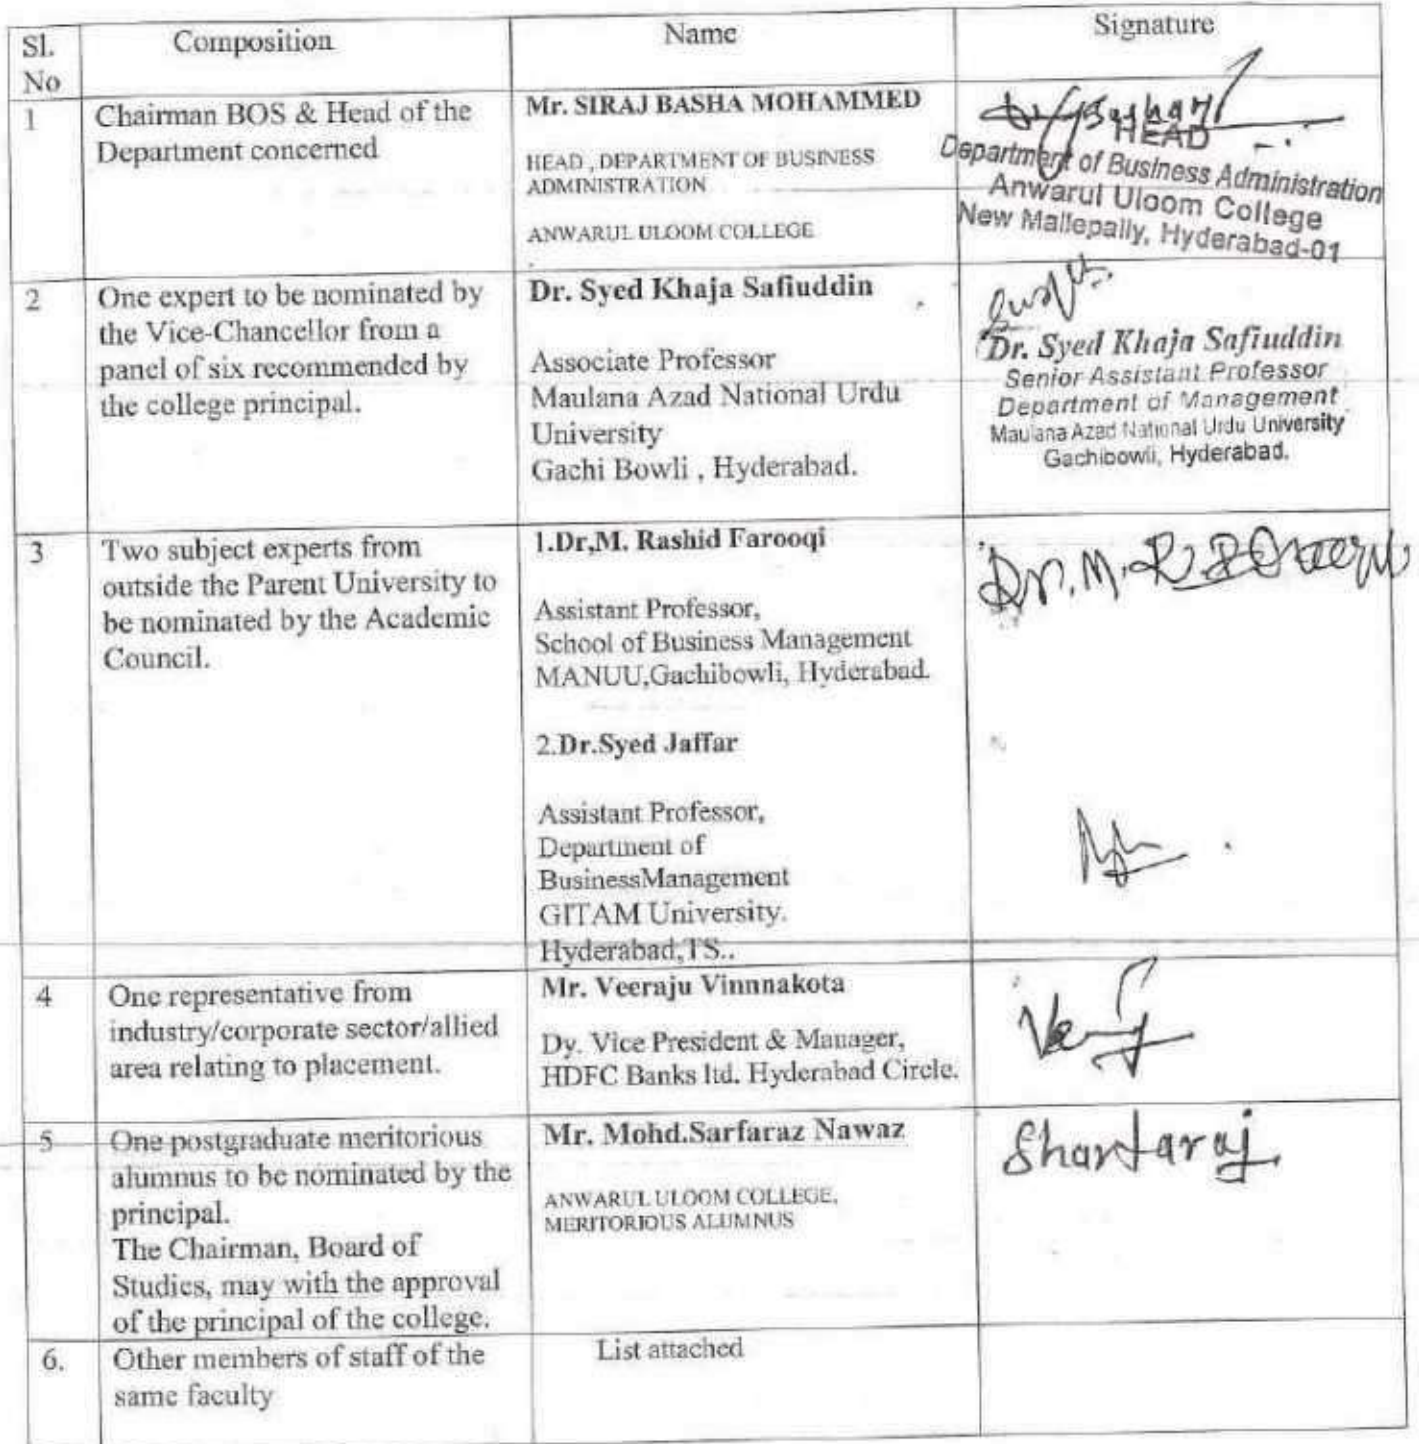 Sl.
No
Composition
Name
Signature
1
Chairman BOS & Head of the
Department concerned
Mr. SIRAJ BASHA MOHAMMED
HEAD , DEPARTMENT OF BUSINESS
ADMINISTRATION
ANWARUL ULOOM COLLEGE
HEAD
Department of Business Administration
Anwarul Uloom College
New Mallepally, Hyderabad-01
2
One expert to be nominated by
the Vice-Chancellor from a
panel of six recommended by
the college principal.
Dr. Syed Khaja Safiuddin
Associate Professor
Maulana Azad National Urdu
University
Gachi Bowli , Hyderabad.
Dr. Syed Khaja Safiuddin
Senior Assistant Professor
Department of Management
Maulana Azad National Urdu University
Gachibowli, Hyderabad.
3
Two subject experts from
outside the Parent University to
be nominated by the Academic
Council.
1.Dr,M. Rashid Farooqi
Assistant Professor,
School of Business Management
MANUU,Gachibowli, Hyderabad.
Dr. M. R
2.Dr.Syed Jaffar
Assistant Professor,
Department of
BusinessManagement
GITAM University.
Hyderabad,TS..
4
One representative from
industry/corporate sector/allied
area relating to placement.
Mr. Veeraju Vinnnakota
Dy. Vice President & Manager,
HDFC Banks ltd. Hyderabad Circle.
5
One postgraduate meritorious
alumnus to be nominated by the
principal.
The Chairman, Board of
Studies, may with the approval
of the principal of the college.
Mr. Mohd.Sarfaraz Nawaz
ANWARUL ULOOM COLLEGE,
MERITORIOUS ALUMNUS
6.
Other members of staff of the
same faculty
List attached